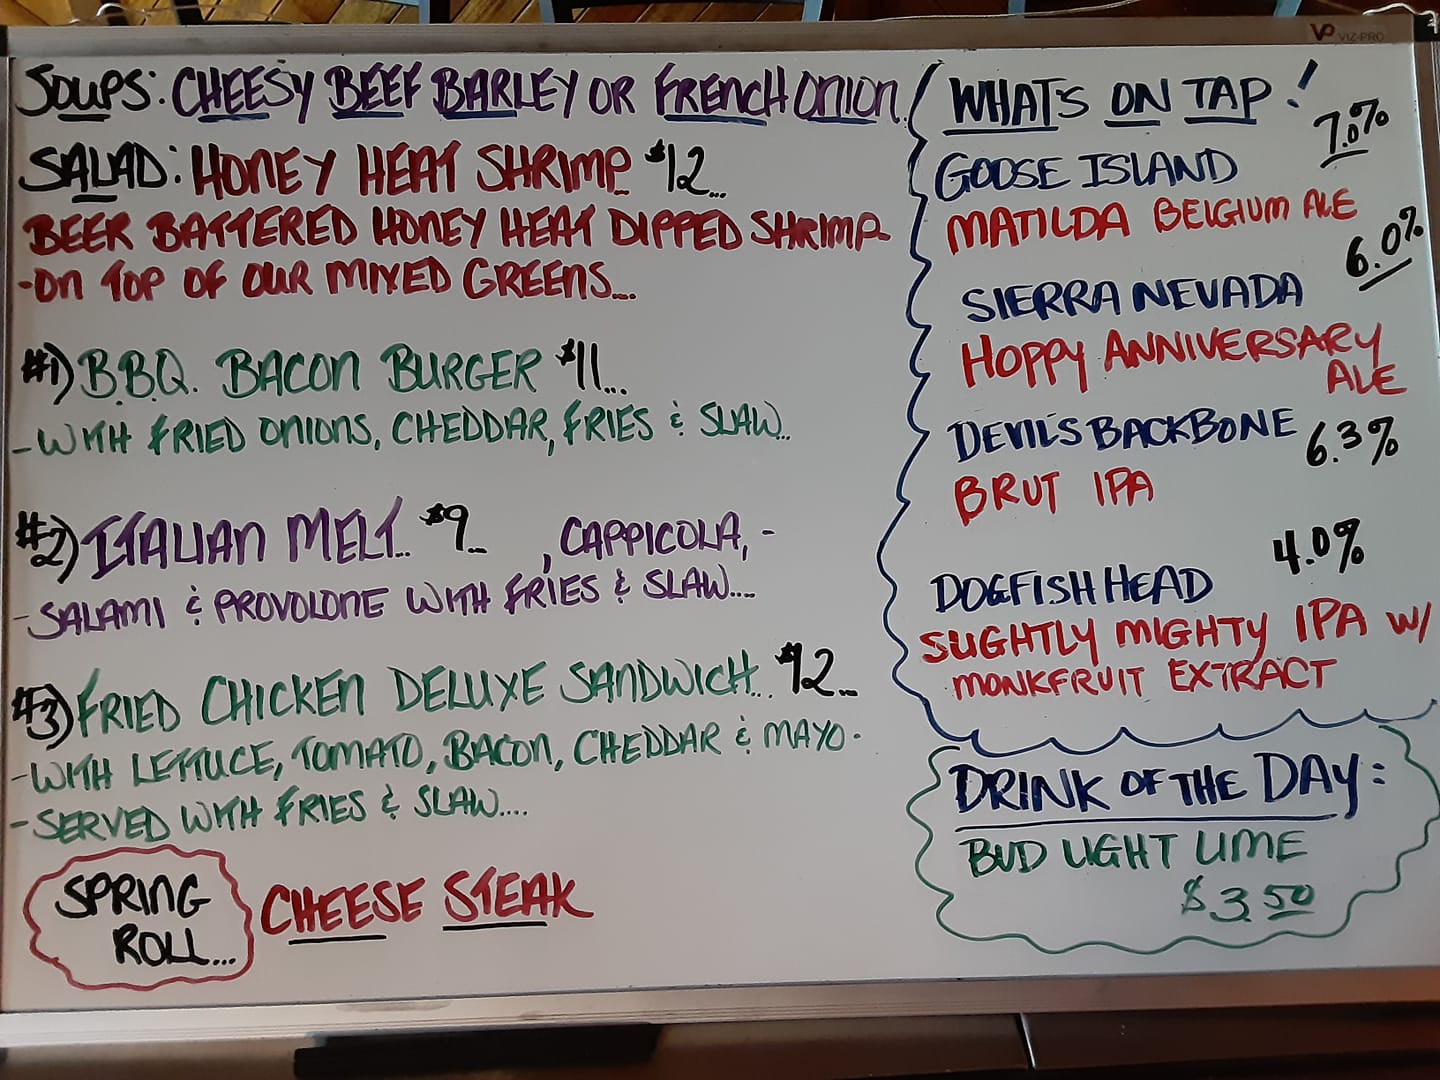 SOUPS: CHEESY BEEF BARLEY OR FRENCH ONION
SALAD: HONEY HEAT SHRIMP $12...
BEER BATTERED HONEY HEAT DIPPED SHRIMP-
-ON TOP OF OUR MIXED GREENS...
#1) B.B.Q. BACON BURGER $11...
-WITH FRIED ONIONS, CHEDDAR, FRIES & SLAW..
#2) ITALIAN MELT... $9... , CAPPICOLA, -
-SALAMI & PROVOLONE WITH FRIES & SLAW....
#3) FRIED CHICKEN DELUXE SANDWICH... $12...
-WITH LETTUCE, TOMATO, BACON, CHEDDAR & MAYO-
-SERVED WITH FRIES & SLAW....
SPRING
ROLL...
CHEESE STEAK
VP VIZ-PRO
WHAT'S ON TAP!
7.0%
GOOSE ISLAND
MATILDA BELGIUM ALE
6.0%
SIERRA NEVADA
HOPPY ANNIVERSARY
ALE
DEVIL'S BACKBONE
6.3%
BRUT IPA
4.0%
DOGFISH HEAD
SLIGHTLY MIGHTY IPA W/
MONKFRUIT EXTRACT
DRINK OF THE DAY:
BUD LIGHT LIME
$3.50